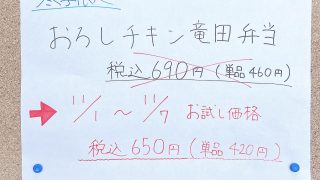 おろしチキン竜田弁当
税込690円(単品460円)
11/1～11/7 お試し価格
税込650円(単品420円)